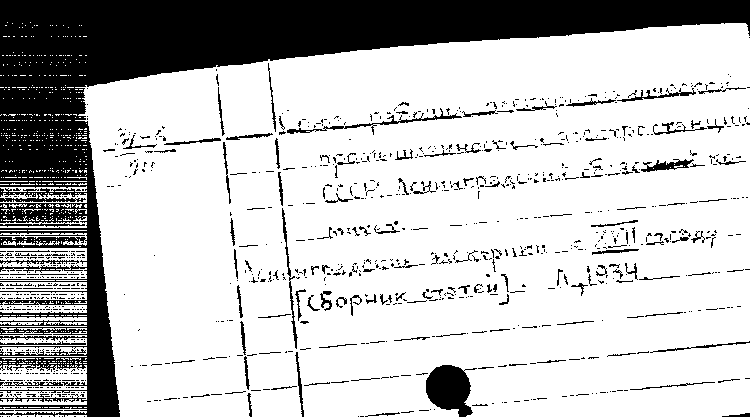 Союз рабочих электротехнической
промышленности и электростанций
СССР. Ленинградский областной ко-
митет.
Ленинградские электрики к XVII съезду
[Сборник статей]. Л., 1934.